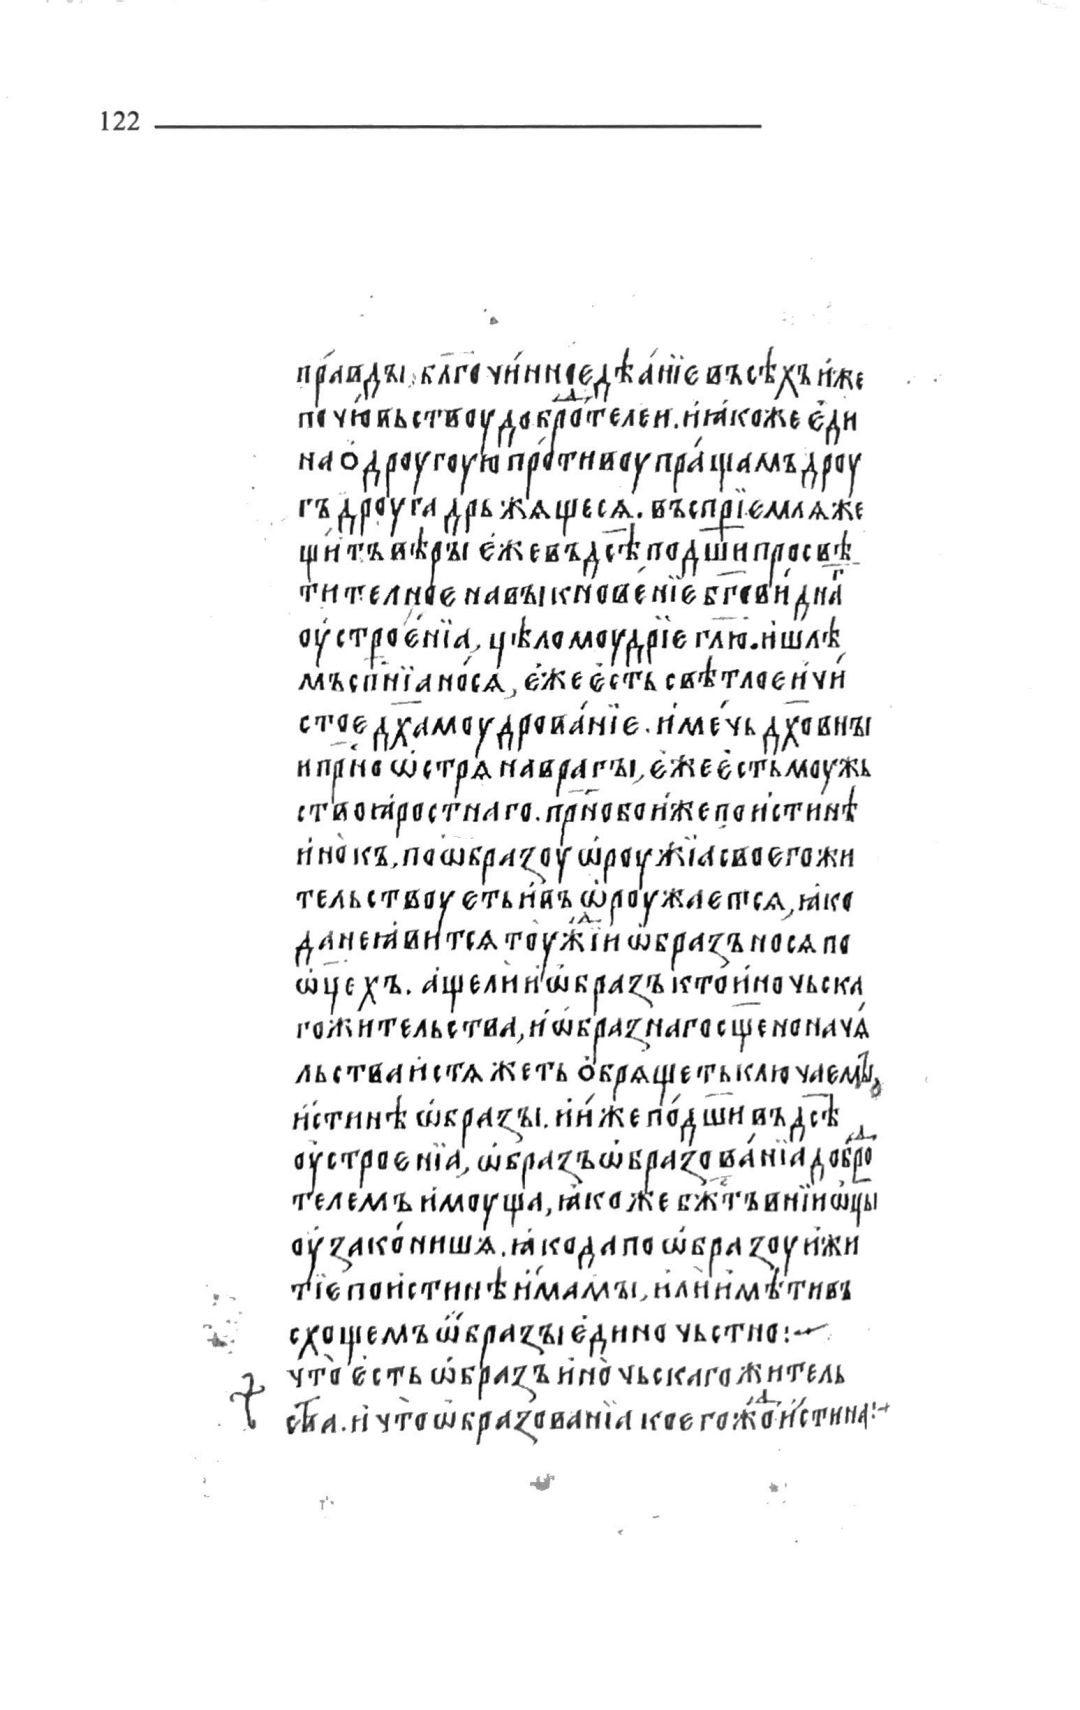 122
пра́вды, бл҃гочи́нноє дѣа́нїе въ сѣ́хъ и҆́же
по чю́вьствоу добро́дⷣтелеи. и҆ ꙗ҆́коже є҆ди
на ѻ҆ дроугоую про́тивоу пра́щамъ дроу
гъ дроуга дрьжѧщесѧ. въспрїємлѧ же
щи́тъ вѣ́ры є҆́же въ дс҃ѣ подш҃и просвѣ
тителноє навыкнове́нїе бг҃ови́днаⷢ҇
оу҆строе́нїа, цѣломоудрїе гл҃ю. и҆ шлѣ́
мъ сп҃нїа но́сѧ, є҆́же є҆́сть свѣ́тлоє и҆ чи́
стоє дх҃а моудрова́нїе. и҆ ме́чь дх҃овны
и прⷭ҇но ѡ҆стрѧ на врагы, є҆́же є҆́сть моужь
ство ꙗ҆́ростнаго. прⷭ҇но бо и҆́же по и҆́стинѣ
и҆но̀къ, по ѡ҆́бразоу ѡ҆роу́жїа своєго жи
тельствоуєть и҆ въ ѡ҆роужаєтсѧ, ꙗ҆ко
да не ꙗ҆ви́тсѧ тоу́жⷣїи ѡ҆́бразъ носѧ по
ѡ҆ц҃ехъ. а҆́ще ли и҆ и҆́ ѡ҆́бразъ кто и҆́ночьска
го жи́тельства, и҆ ѡ҆́бразнаго сщ҃еноначѧ́
льства и҆стѧжеть ѻ҆брѧщеть ключаємы,
и҆́стинѣ ѡ҆́бразы. и҆́ и҆́же по́дш҃и въ дс҃ѣ
оу҆строенїа, ѡ҆́бразъ ѡ҆бразова́нїа доброⷣ
телемъ и҆моуща, ꙗ҆коже бж҃тъвнїи ѡ҆ц҃ы
оу҆зако́нишѧ. ꙗ҆ко да по ѡ҆́бразоу и҆ жи
тїе по и҆́стинѣ и҆́мамы, и҆ли̂ и҆мѣ́ти въ
схощемъ ѡ҆́бразы є҆ди́ночьстно:~
что̀ є҆́сть ѡ҆́бразъ и҆но̀чьскаго жи́тель
ст҃ва. и҆ что̀ ѡ҆бразованїа коєгожⷣо и҆́стина:+